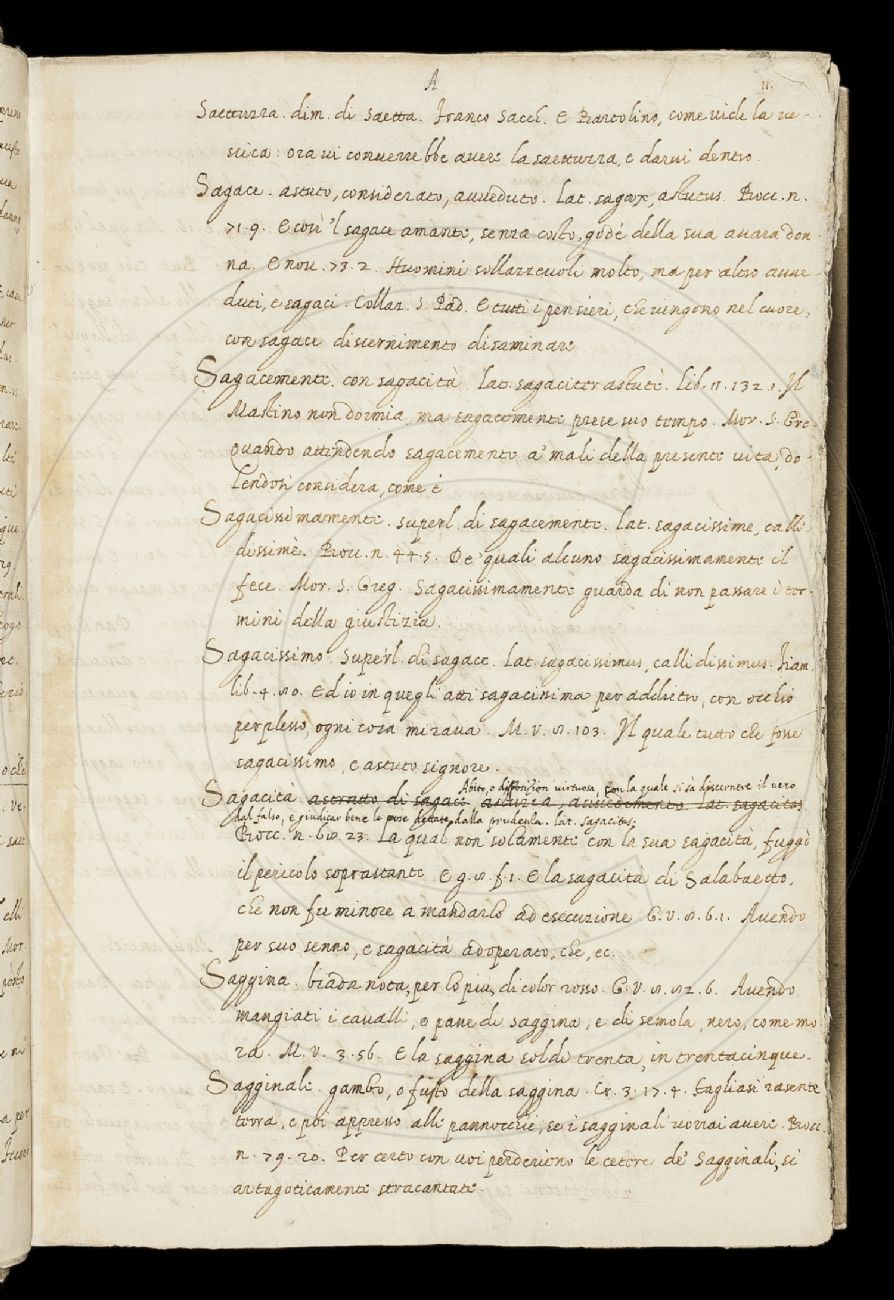 A
11.
Saettuzza. dim. di Saetta. Franco Sacch. E Bartolino, come vide la ve-
scica: ora vi converrebbe avere la saettuzza, e darvi dentro.
Sagace. astuto, considerato, avveduto. lat. sagax, astutus. Bocc. n.
71. 9. E così 'l sagace amante, senza costo, godé della sua avara don-
na. E nov. 73. 2. Huomini sollazzevoli molto, ma per altro avve-
duti, e sagaci. Collaz. S. Pad. E tutti i pensieri, che vengono nel cuore,
con sagace discernimento disaminare
Sagacemente. con sagacità. lat. sagaciter astutè. lib. 11. 132. 1. Il
Mastino non dormia, ma sagacemente prese suo tempo. Mor. S. Gre.
quando attendendo sagacemente a' mali della presente vita, do-
lendosi considera, come è
Sagacissimamente. superl. di sagacemente. lat. sagacissime, calli
dissimè. Bocc. n. 44. 5. De' quali alcuno sagacissimamente il
fece. Mor. S. Greg. Sagacissimamente guarda di non passare i ter-
mini della giustizia.
Sagacissimo. Superl. di sagace. lat. sagacissimus, callidissimus. Fiam.
lib. 4. 80. Ed io in quegli atti sagacissima per addietro, con occhio
perplesso, ogni cosa mirava. M. V. 8. 103. Il quale tutto che fosse
sagacissimo, e astuto signore.
Abito, o disposizion virtuosa, con la quale si sà discernere il vero
Sagacità. astratto di sagace. astuzia, avvedimento. lat. sagacitas
dal falso, e giudicar bene le cose dettate dalla prudenza. lat. sagacitas.
Bocc. n. 68. 23. La qual non solamente con la sua sagacità, fuggò
il pericolo soprastante. E g. 8. f. 1. E la sagacità di Salabaetto,
che non fu minore a mandarlo ad esecuzione G. V. 8. 6. 1. Avendo
per suo senno, e sagacità adoperato, che, ec.
Saggina. biada nota, per lo più, di color rosso. G. V. 8. 82. 6. Avendo
mangiati i cavalli, e pane di saggina, e di semola, nero, come mo
ra. M. V. 3. 56. E la saggina soldi trenta, in trentacinque.
Sagginale. gambo, o fusto della saggina. Cr. 3. 17. 4. Tagliasi rasente
terra, e poi appresso alle pannocchie, se i sagginali vorrai avere. Bocc.
n. 79. 20. Per certo con voi perderieno le cetere de' Sagginali, sì
artagoticamente stracantate.